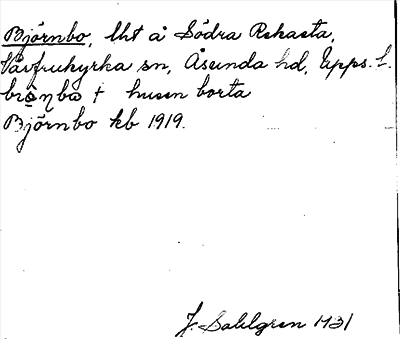 Björnbo, lht å Södra Rekasta,
Vårfrukyrka sn, Åsunda hd, Upps. l.
husen borta
Björnbo kb 1919.
J. Sahlgren 1931